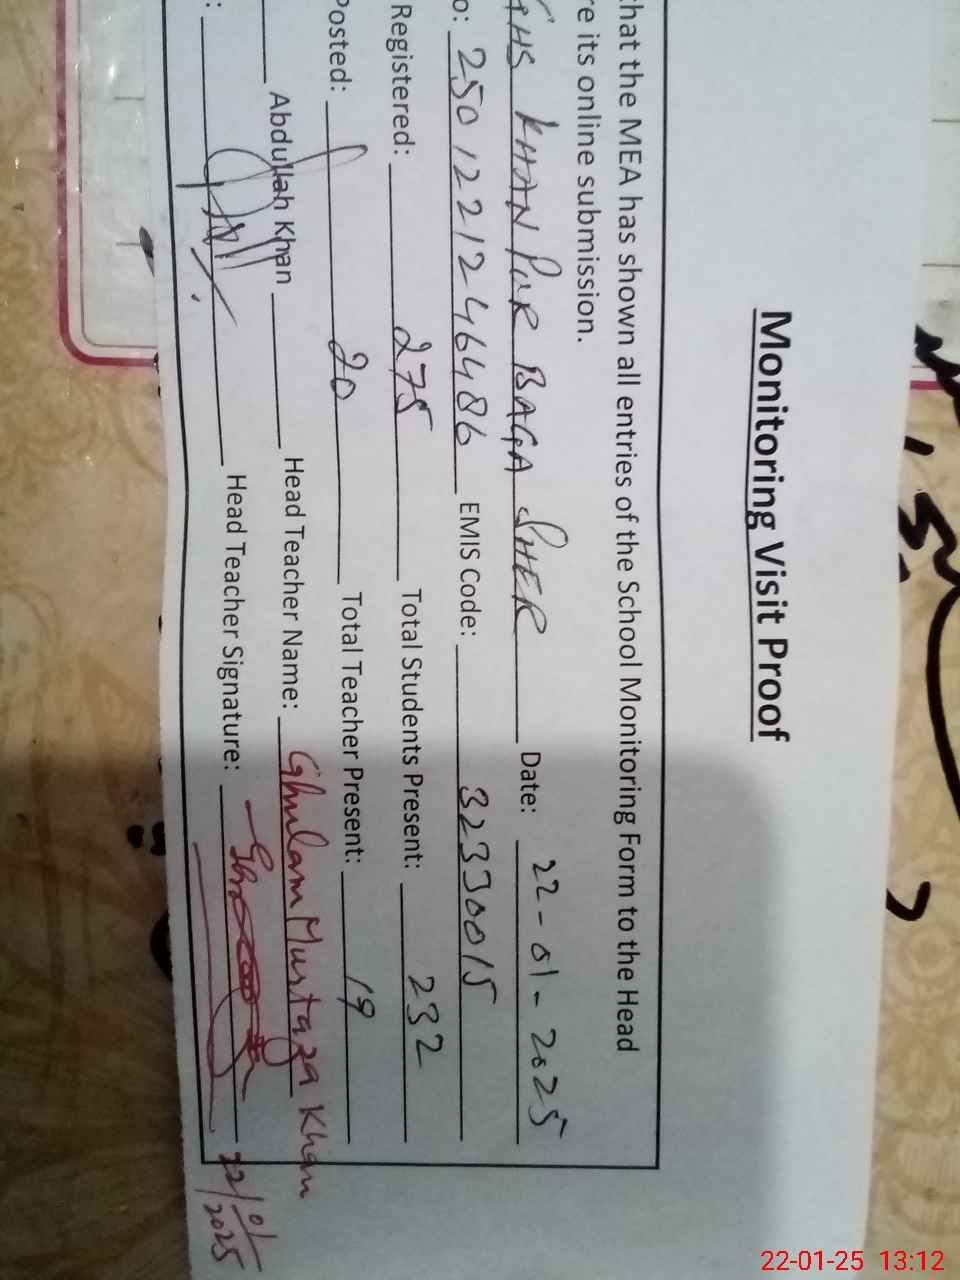 Monitoring Visit Proof
that the MEA has shown all entries of the School Monitoring Form to the Head
re its online submission.
GHS KHAN PUR BAGA SHER Date: 22-01-2025
o: 2501221246486 EMIS Code: 32330015
Registered: 275 Total Students Present: 232
Posted: 20 Total Teacher Present: 19
Abdullah Khan Head Teacher Name: Ghulam Murtaza Khan
: Head Teacher Signature:
22/01/2025
22-01-25 13:12